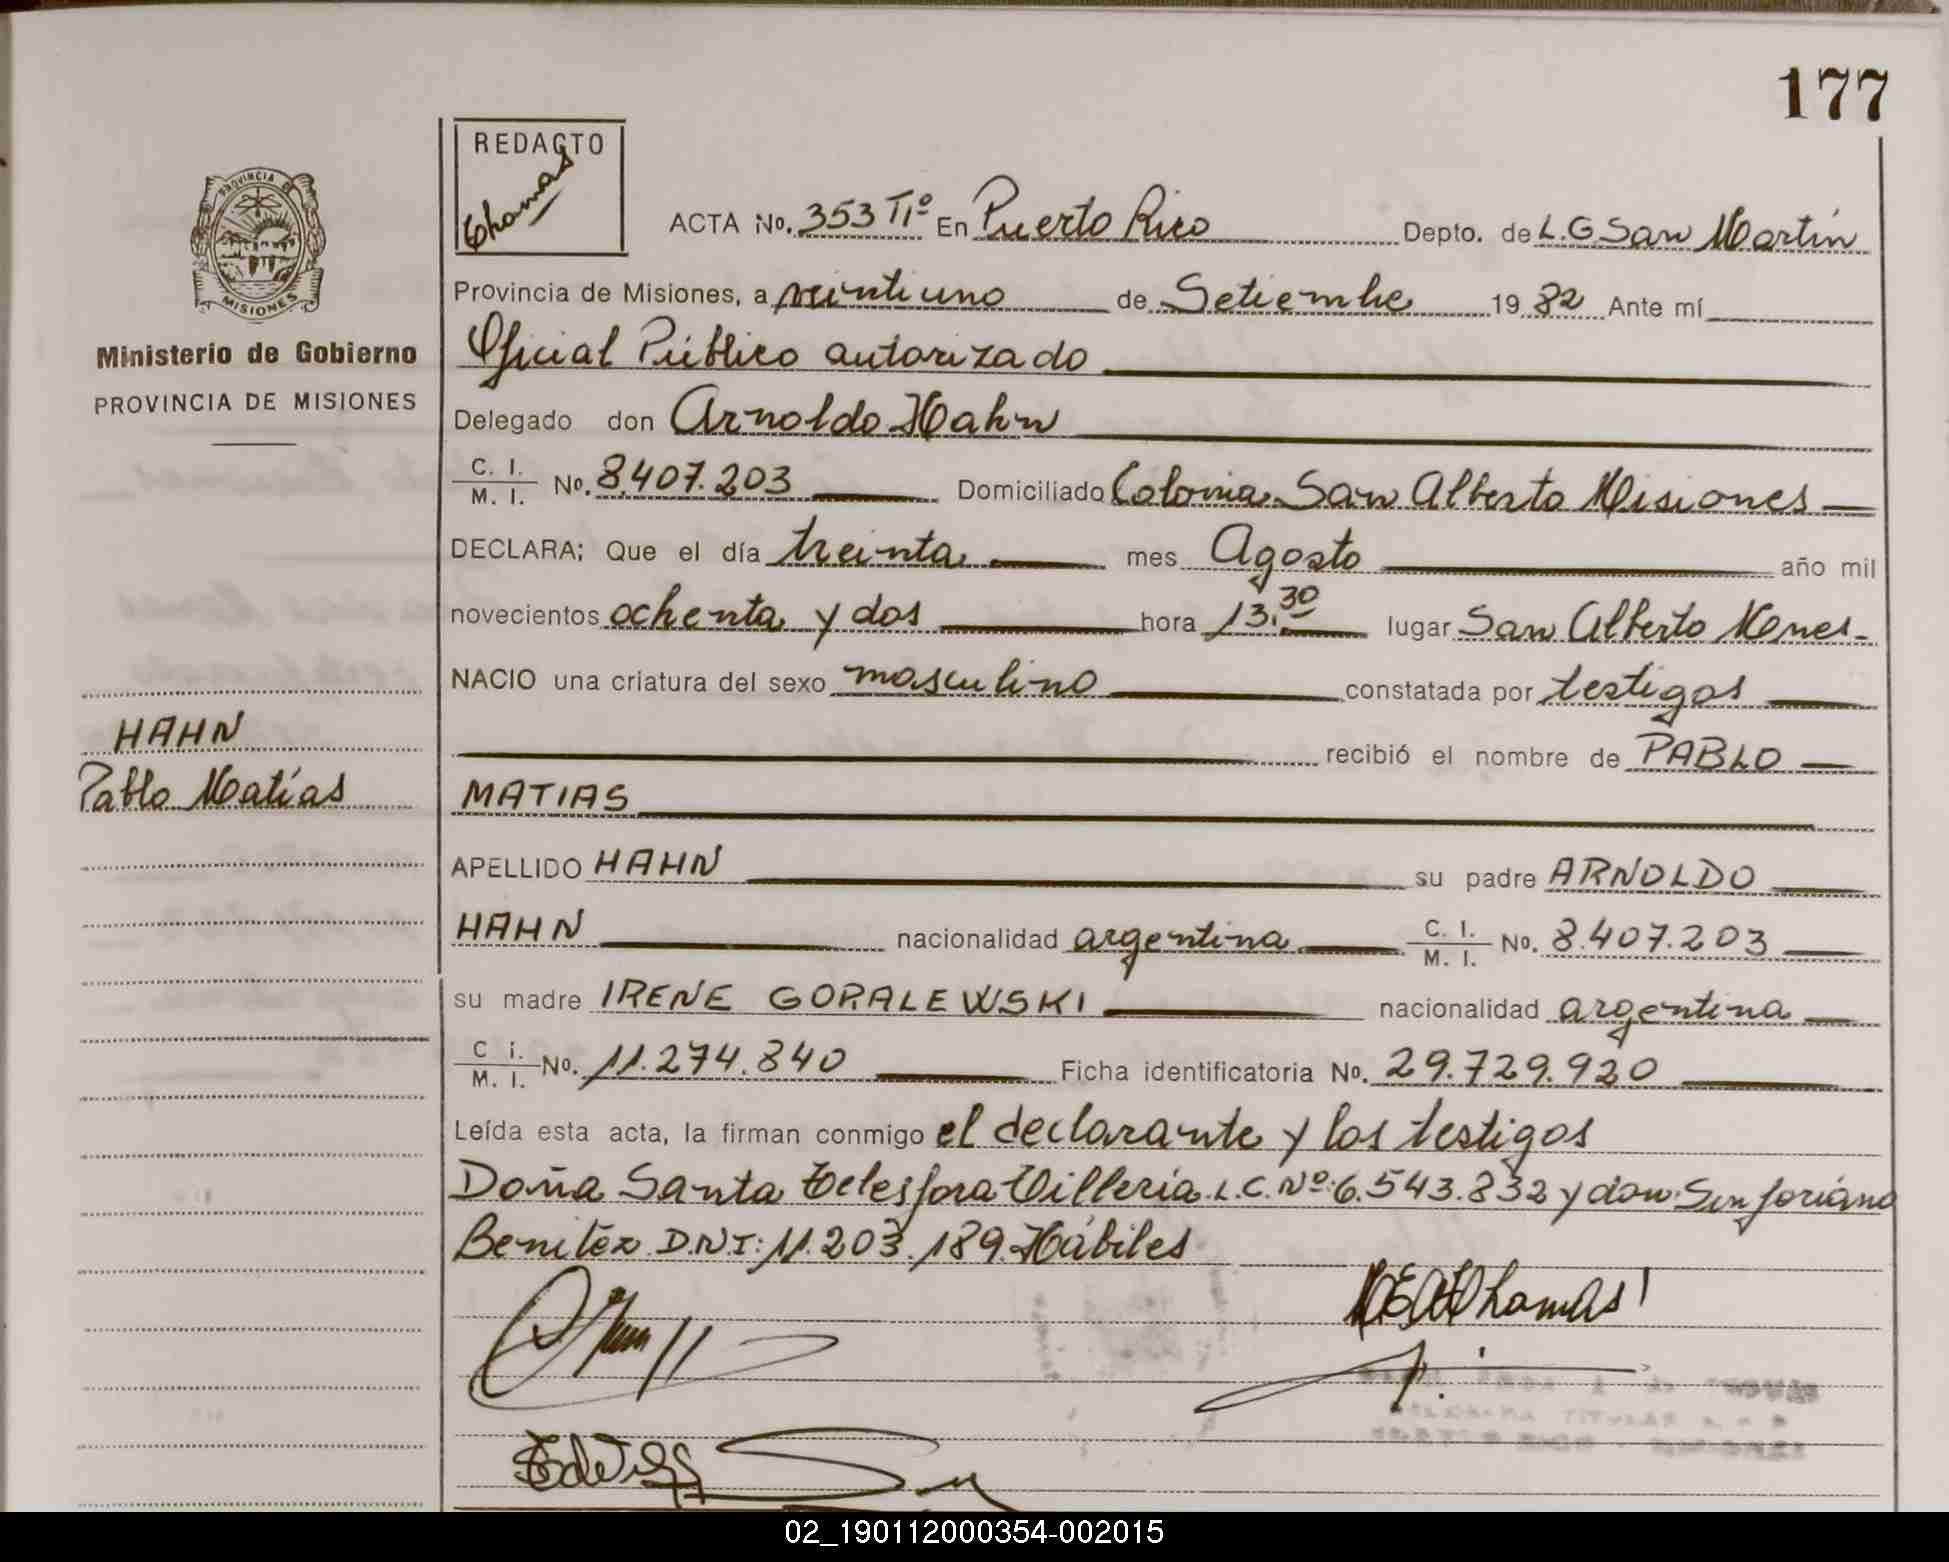 177
REDACTO
Thomas
PROVINCIA DE
MISIONES
Ministerio de Gobierno
PROVINCIA DE MISIONES
ACTA No. 353 Tº En Puerto Rico Depto. de L.G San Martín
Provincia de Misiones, a veintiuno de Setiembre 19 82 Ante mí
Oficial Público autorizado
Delegado don Arnoldo Hahn
C. I. / M. I. No. 8.407.203 Domiciliado Colonia San Alberto Misiones
DECLARA; Que el día treinta mes Agosto año mil
novecientos ochenta y dos hora 13.30 lugar San Alberto Mnes.
NACIO una criatura del sexo masculino constatada por testigos
HAHN
recibió el nombre de PABLO
Pablo Matías
MATIAS
APELLIDO HAHN su padre ARNOLDO
HAHN nacionalidad argentina C. I. / M. I. No. 8.407.203
su madre IRENE GORALEWSKI nacionalidad argentina
C i. / M. I. No. 11.274.840 Ficha identificatoria No. 29.729.920
Leída esta acta, la firman conmigo el declarante y los testigos
Doña Santa Telesfora Villeria L.C. Nº 6.543.832 y don Sinforiano
Benitez D.N.I: 11.203.189. Hábiles
Thomas
02_190112000354-002015